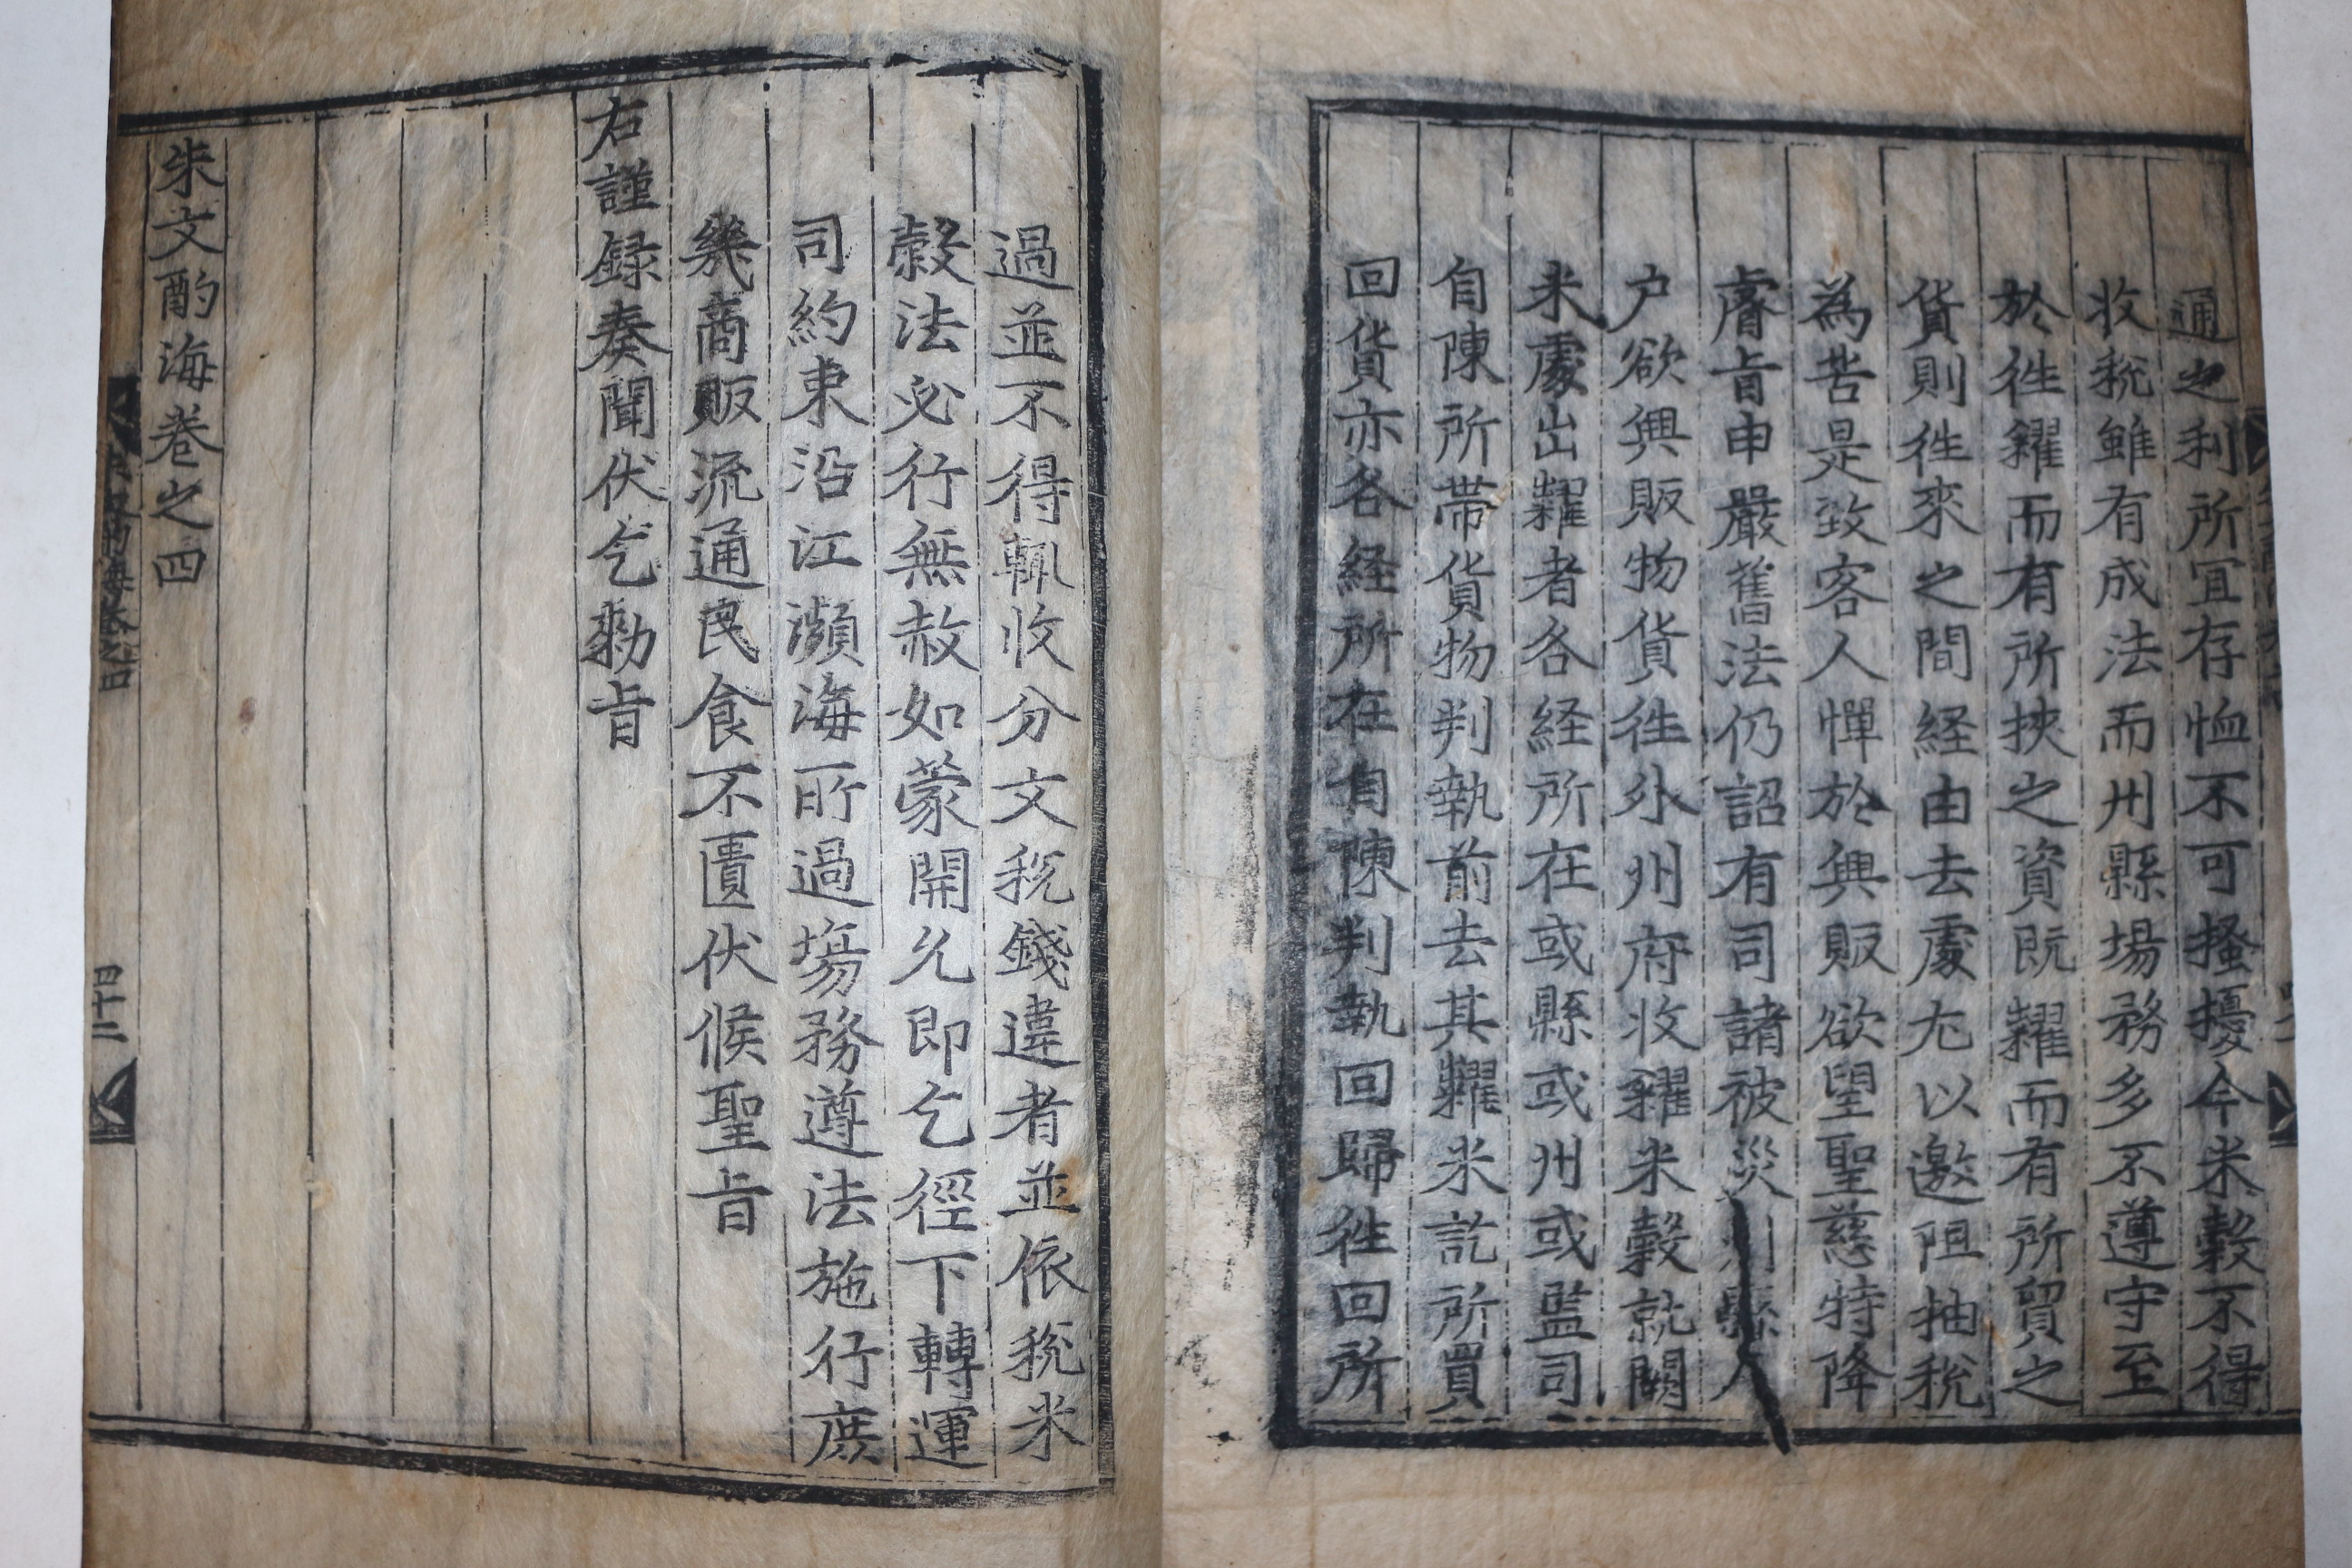 通之利所冝存恤不可搔擾今米糓不得
收稅雖有成法而州縣場務多不遵守至
於徃糴而有所挾之資旣糶而有所貿之
貨則徃來之間経由去處尤以邀阻抽稅
為苦是致客人憚於興販欲望聖慈特降
睿旨申嚴舊法仍詔有司諸被災州縣人
户欲興販物貨徃外州府收糴米糓就闕
米處出糶者各経所在或縣或州或監司
自陳所帶貨物判執前去其糶米訖所買
回貨亦各経所在自陳判執回歸徃回所
過並不得輒收分文稅錢違者並依稅米
糓法必行無赦如蒙開允即乞徑下轉運
司約束沿江瀕海所過塲務遵法施行庶
幾商販流通民食不匱伏候聖旨
右謹録奏聞伏乞勑旨
朱文酌海卷之四
朱文酌海卷之四
四十二